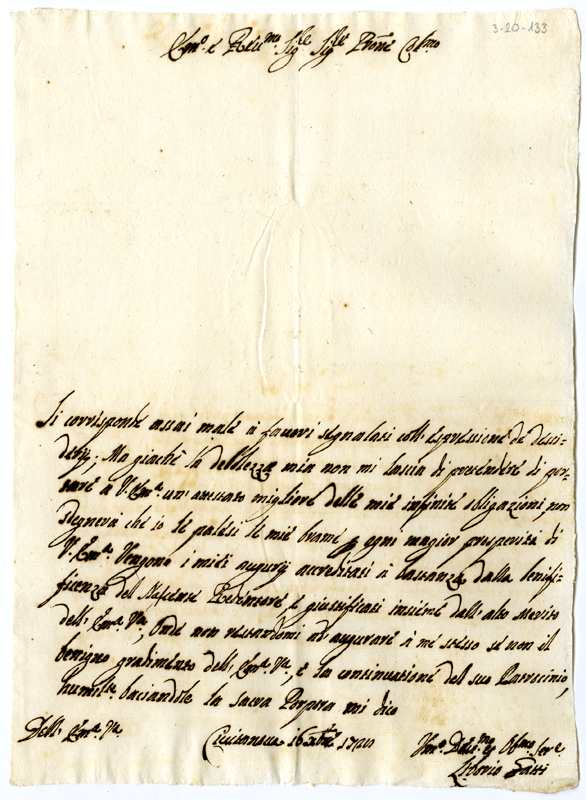 3-20-133
Em.o e Reu.mo Sig.re Sig.re Pron.e Col.mo
Si corrisponde assai male à fauori segnalati coll'espressione de desi-
derij; Ma giache la debolezza mia non mi lascia di pretendere di por-
tare à V. Em.a un attestato migliore delle mie infinite obligazioni, non
sdegnerà che io le palesi le mie brame p ogni magior prosperità di
V. Em.a Vengono i miei augurij accreditati à bastanza dalla benifi-
ficenza del Nascente Redentore, e giustificati insieme dall'alto merito
dell'Em.a V.a, Onde non restandomi ad augurare à me stesso se non il
benigno gradimento dell'Em.a V.a, e la continuatione del suo Patrocinio,
humil.te baciandole la sacra Porpora mi dico
Dell'Em.a V.a
Ciuitanoua 16
Hum.o Deu.mo et Obl.mo Ser.e
Liborio